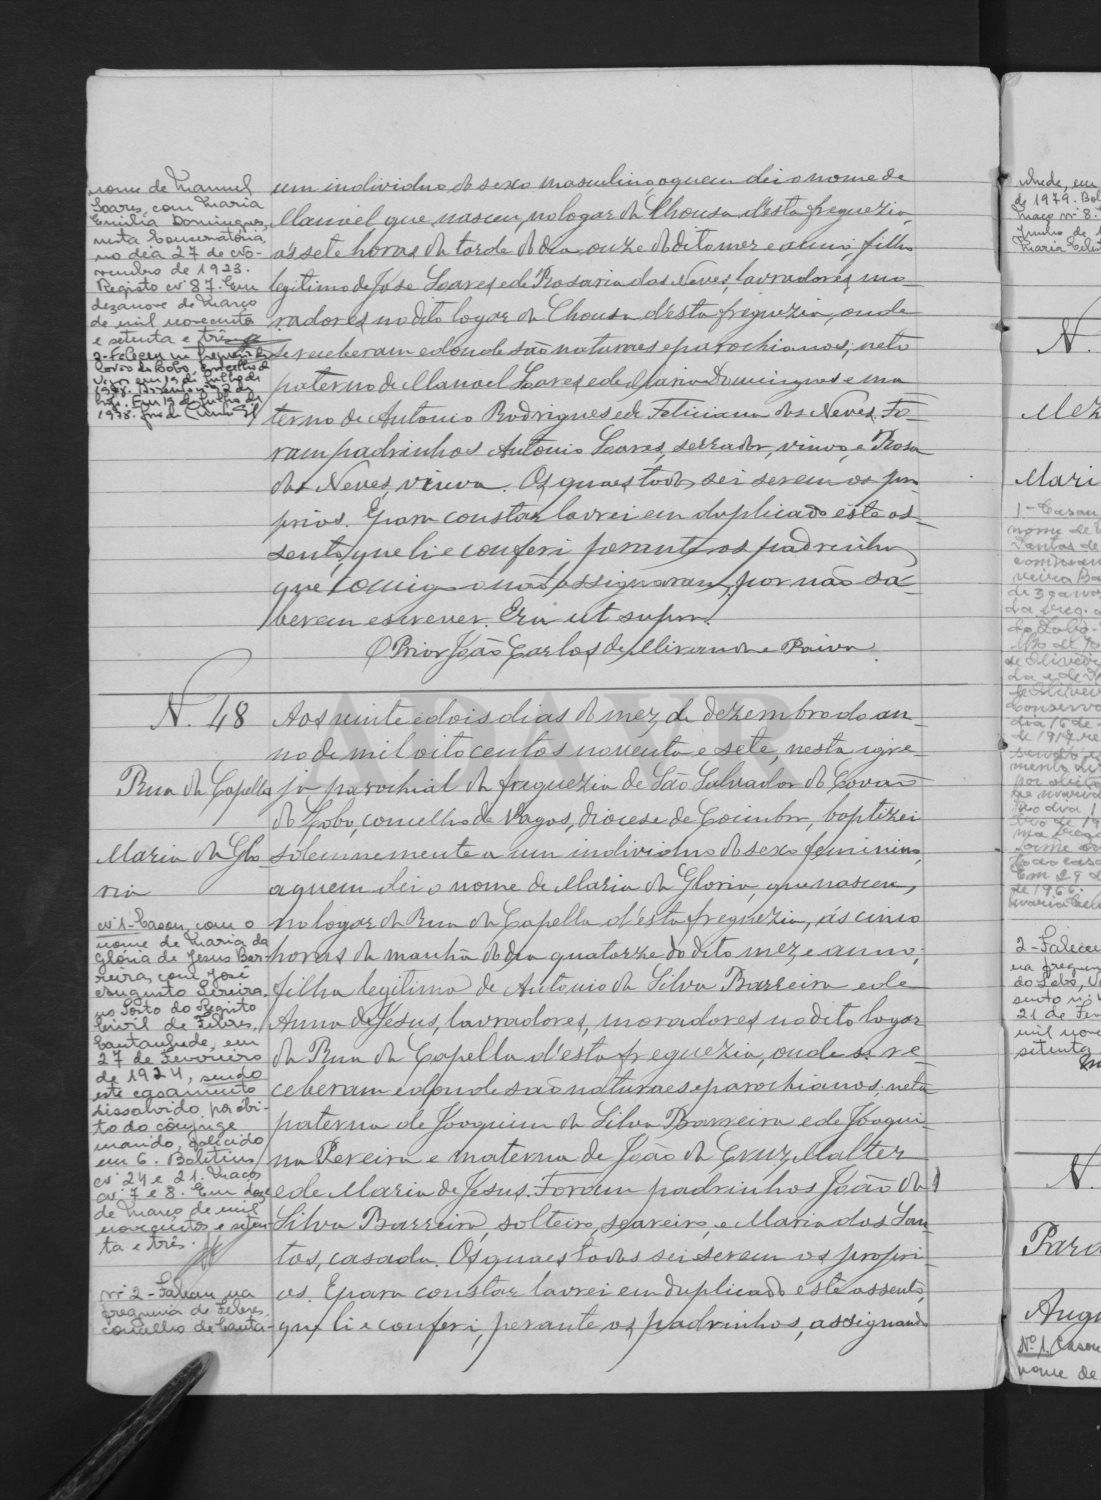 nome de Manuel
Soares, com Maria
Emilia Domingues,
nesta Conservatória,
no dia 27 de No-
vembro de 1923.
Registo nº 87. Em
dezanove de Março
de mil novecentos
e setenta e três
2-Faleceu na freguesia
Covão do Lobo, concelho de
Vagos em 19 de Julho de
1978.
hoje. Em 19 de Julho de
1978.
um individuo do sexo masculino, a quem dei o nome de
Manoel que nasceu, no logar da Chousa d'esta freguezia
ás sete horas da tarde do dia onze do dito mez e anno; filho
legitimo de José Soares e de Rosaria das Neves, lavradores, mo-
radores no dito logar da Chousa d'esta freguezia, onde
se receberam e donde são naturaes e parochianos; neto
paterno de Manoel Soares e de Maria Domingues e ma
terno de Antonio Rodrigues e de Feliciana das Neves. Fo-
ram padrinhos Antonio Soares, serrador, viuvo, e Rosa
das Neves, viuva. Os quaes todos sei serem os pro
prios. E para constar lavrei em duplicado este as-
sento, que li e conferi perante os padrinhos
que comigo não assignaram, por não sa-
berem escrever. Era ut supra.
O Prior João Carlos de Miranda e Paiva
N. 48
Rua da Capella
Maria da Glo-
ria
Aos vinte e dois dias do mez de dezembro do an-
no de mil oitocentos noventa e sete, nesta igre-
ja parochial da freguezia de São Salvador do Covão
do Lobo, concelho de Vagos, diocese de Coimbra, baptizei
solemnemente a um individuo do sexo feminino,
a quem dei o nome de Maria da Gloria, que nasceu,
no logar da Rua da Capella d'esta freguezia, ás cinco
horas da manhã do dia quatorze do dito mez e anno;
filha legitima de Antonio da Silva Barreira e de
Anna de Jesus, lavradores, moradores no dito logar
da Rua da Capella d'esta freguezia, onde se re-
ceberam e donde são naturaes e parochianos; neta
paterna de Joaquim da Silva Barreira e de Joaqui-
na Pereira e materna de João da Cruz Malter
e de Maria de Jesus. Foram padrinhos João da
Silva Barreira, solteiro, seareiro, e Maria dos San
tos, casada. Os quaes todos sei serem os propri-
os. E para constar lavrei em duplicado este assento,
que li e conferi, perante os padrinhos, assignando
nº 1-Casou, com o
nome de Maria da
Glória de Jesus Bar-
reira, com José
Augusto Pereira,
no Posto do Registo
Civil de Febres,
Cantanhede, em
27 de Fevereiro
de 1924, sendo
este casamento
dissolvido por óbi-
to do cônjuge
marido, falecido
em 6. Boletins
nº 24 e 21. Maços
nº 7 e 8. Em doze
de Março de mil
novecentos e seten-
ta e três.
nº 2-Faleceu na
freguesia de Febres,
concelho de Canta-
nhede, em
de 1979. Bol
maço nº 8.
Junho de 1
Maria Celes
N.
Mez
Mari
1-Casou
nome de
Santos de
de 1917
de 1966.
Maria Cele
2-Faleceu
na fregue
do Lobo, V
sento nº
21 de Fev
mil nove
setenta
N.
Para
Augu
Nº 1. Casou
nome de